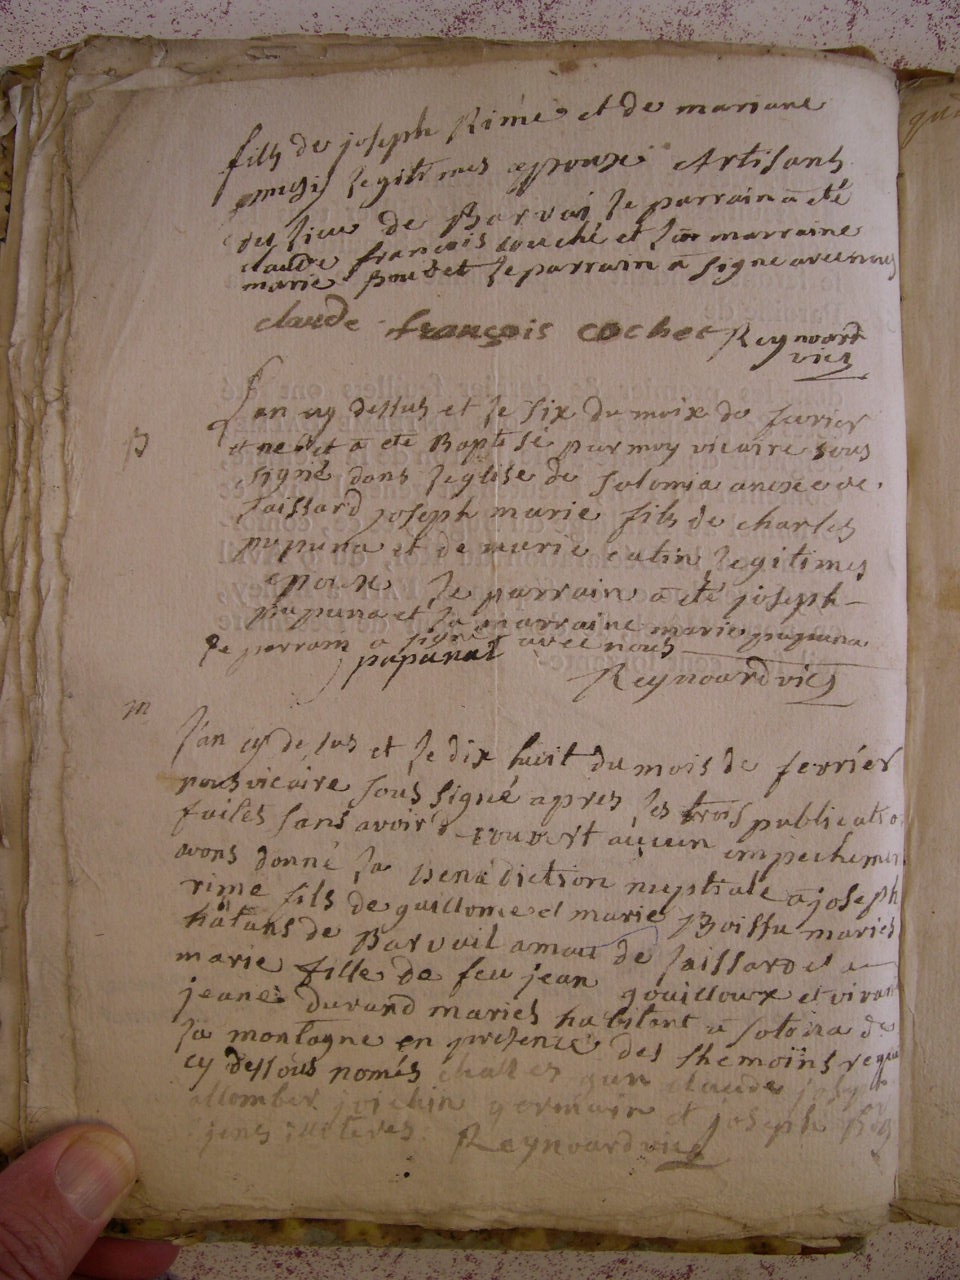 fils de joseph Rimé et de mariane
legitimes epoux Artisans
du lieu de Barvai le parrain a été
claude françois couché et la marraine
marie Boudet le parrain a signé avec nous
claude françois cochet Reynoard
vic3
Lan cy dessus et le six du moix de fevrier
B
et ne et a eté Baptisé par moy vicaire sous
signé dans leglise de Solomia anexe de
Saissard joseph marie fils de charles
pupuna et de marie catin legitimes
epoux le parrain a été joseph
pupuna et la marraine marie pupuna
le parrain a signé avec nous
papunat
Reynoard vic3
m
Lan cy de sus et le dix huit du mois de ferrier
nous vicaire sous signé apres les trois publicatio
faites sans avoir decouvert aucun impechemen
avons donné la benediction nuptiale a joseph
rime fils de guillome et marie Boissu mariés
hatans de Barvail amau de Saissard et a
marie fille de feu jean gouilloux et vivan
jeane durand mariés habitant a
la montagne en presence des themoins requi
cy dessous només charles claude joseph
allombet joichin germain et joseph
Reynoard vic3